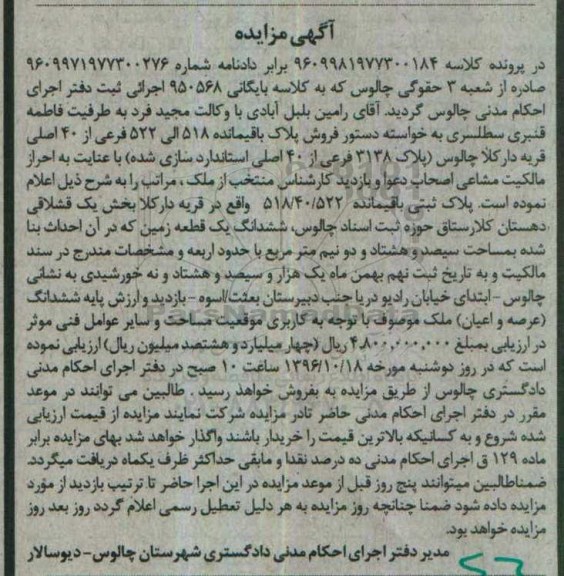 آگهی مزایده
در پرونده کلاسه ۹۶۰۹۹۸۱۹۷۷۳۰۰۱۸۴ برابر دادنامه شماره ۹۶۰۹۹۷۱۹۷۷۳۰۰۲۷۶
صادره از شعبه ۳ حقوگی چالوس که به کلاسه بایگانی ۹۵۰۵۶۸ اجرائی ثبت دفتر اجرای
احکام مدنی چالوس گردید. آقای رامین بلبل آبادی با وکالت مجید فرد به طرفیت فاطمه
قنبری سطلسری به خواسته دستور فروش پلاک باقیمانده ۵۱۸ الی ۵۲۲ فرعی از ۴۰ اصلی
قریه دارکلا چالوس (پلاک ۳۱۳۸ فرعی از ۴۰ اصلی استاندارد سازی شده) با عنایت به احراز
مالکیت مشاعی اصحاب دعوا و بازدید کارشناس منتخب از ملک ، مراتب را به شرح ذیل اعلام
نموده است. پلاک ثبتی باقیمانده ۵۱۸/۴۰/۵۲۲ واقع در قریه دارکلا بخش یک قشلاقی
دهستان کلارستاق حوزه ثبت اسناد چالوس، ششدانگ یک قطعه زمین که در آن احداث بنا
شده بمساحت سیصد و هشتاد و دو نیم متر مربع با حدود اربعه و مشخصات مندرج در سند
مالکیت و به تاریخ ثبت نهم بهمن ماه یک هزار و سیصد و هشتاد و نه خورشیدی به نشانی
چالوس - ابتدای خیابان رادیو دریا جنب دبیرستان بعثت/اسوه - بازدید و ارزش پایه ششدانگ
(عرصه و اعیان) ملک موصوف با توجه به کاربری موقعیت مساحت و سایر عوامل فنی موثر
در ارزیابی بمبلغ ۴،۸۰۰،۰۰۰،۰۰۰ ریال (چهار میلیارد و هشتصد میلیون ریال) ارزیابی نموده
است که در روز دوشنبه مورخه ۱۳۹۶/۱۰/۱۸ ساعت ۱۰ صبح در دفتر اجرای احکام مدنی
دادگستری چالوس از طریق مزایده به بفروش خواهد رسید . طالبین می توانند در موعد
مقرر در دفتر اجرای احکام مدنی حاضر تادر مزایده شرکت نمایند مزایده از قیمت ارزیابی
شده شروع و به کسانیکه بالاترین قیمت را خریدار باشند واگذار خواهد شد بهای مزایده برابر
ماده ۱۲۹ ق اجرای احکام مدنی ده درصد نقدا و مابقی حداکثر ظرف یکماه دریافت میگردد.
ضمناطالبین میتوانند پنج روز قبل از موعد مزایده در این اجرا حاضر تا ترتیب بازدید از مورد
مزایده داده شود ضمنا چنانچه روز مزایده به هر دلیل تعطیل رسمی اعلام گردد روز بعد روز
مزایده خواهد بود.
مدیر دفتر اجرای احکام مدنی دادگستری شهرستان چالوس - دیوسالار
ParsNamadData